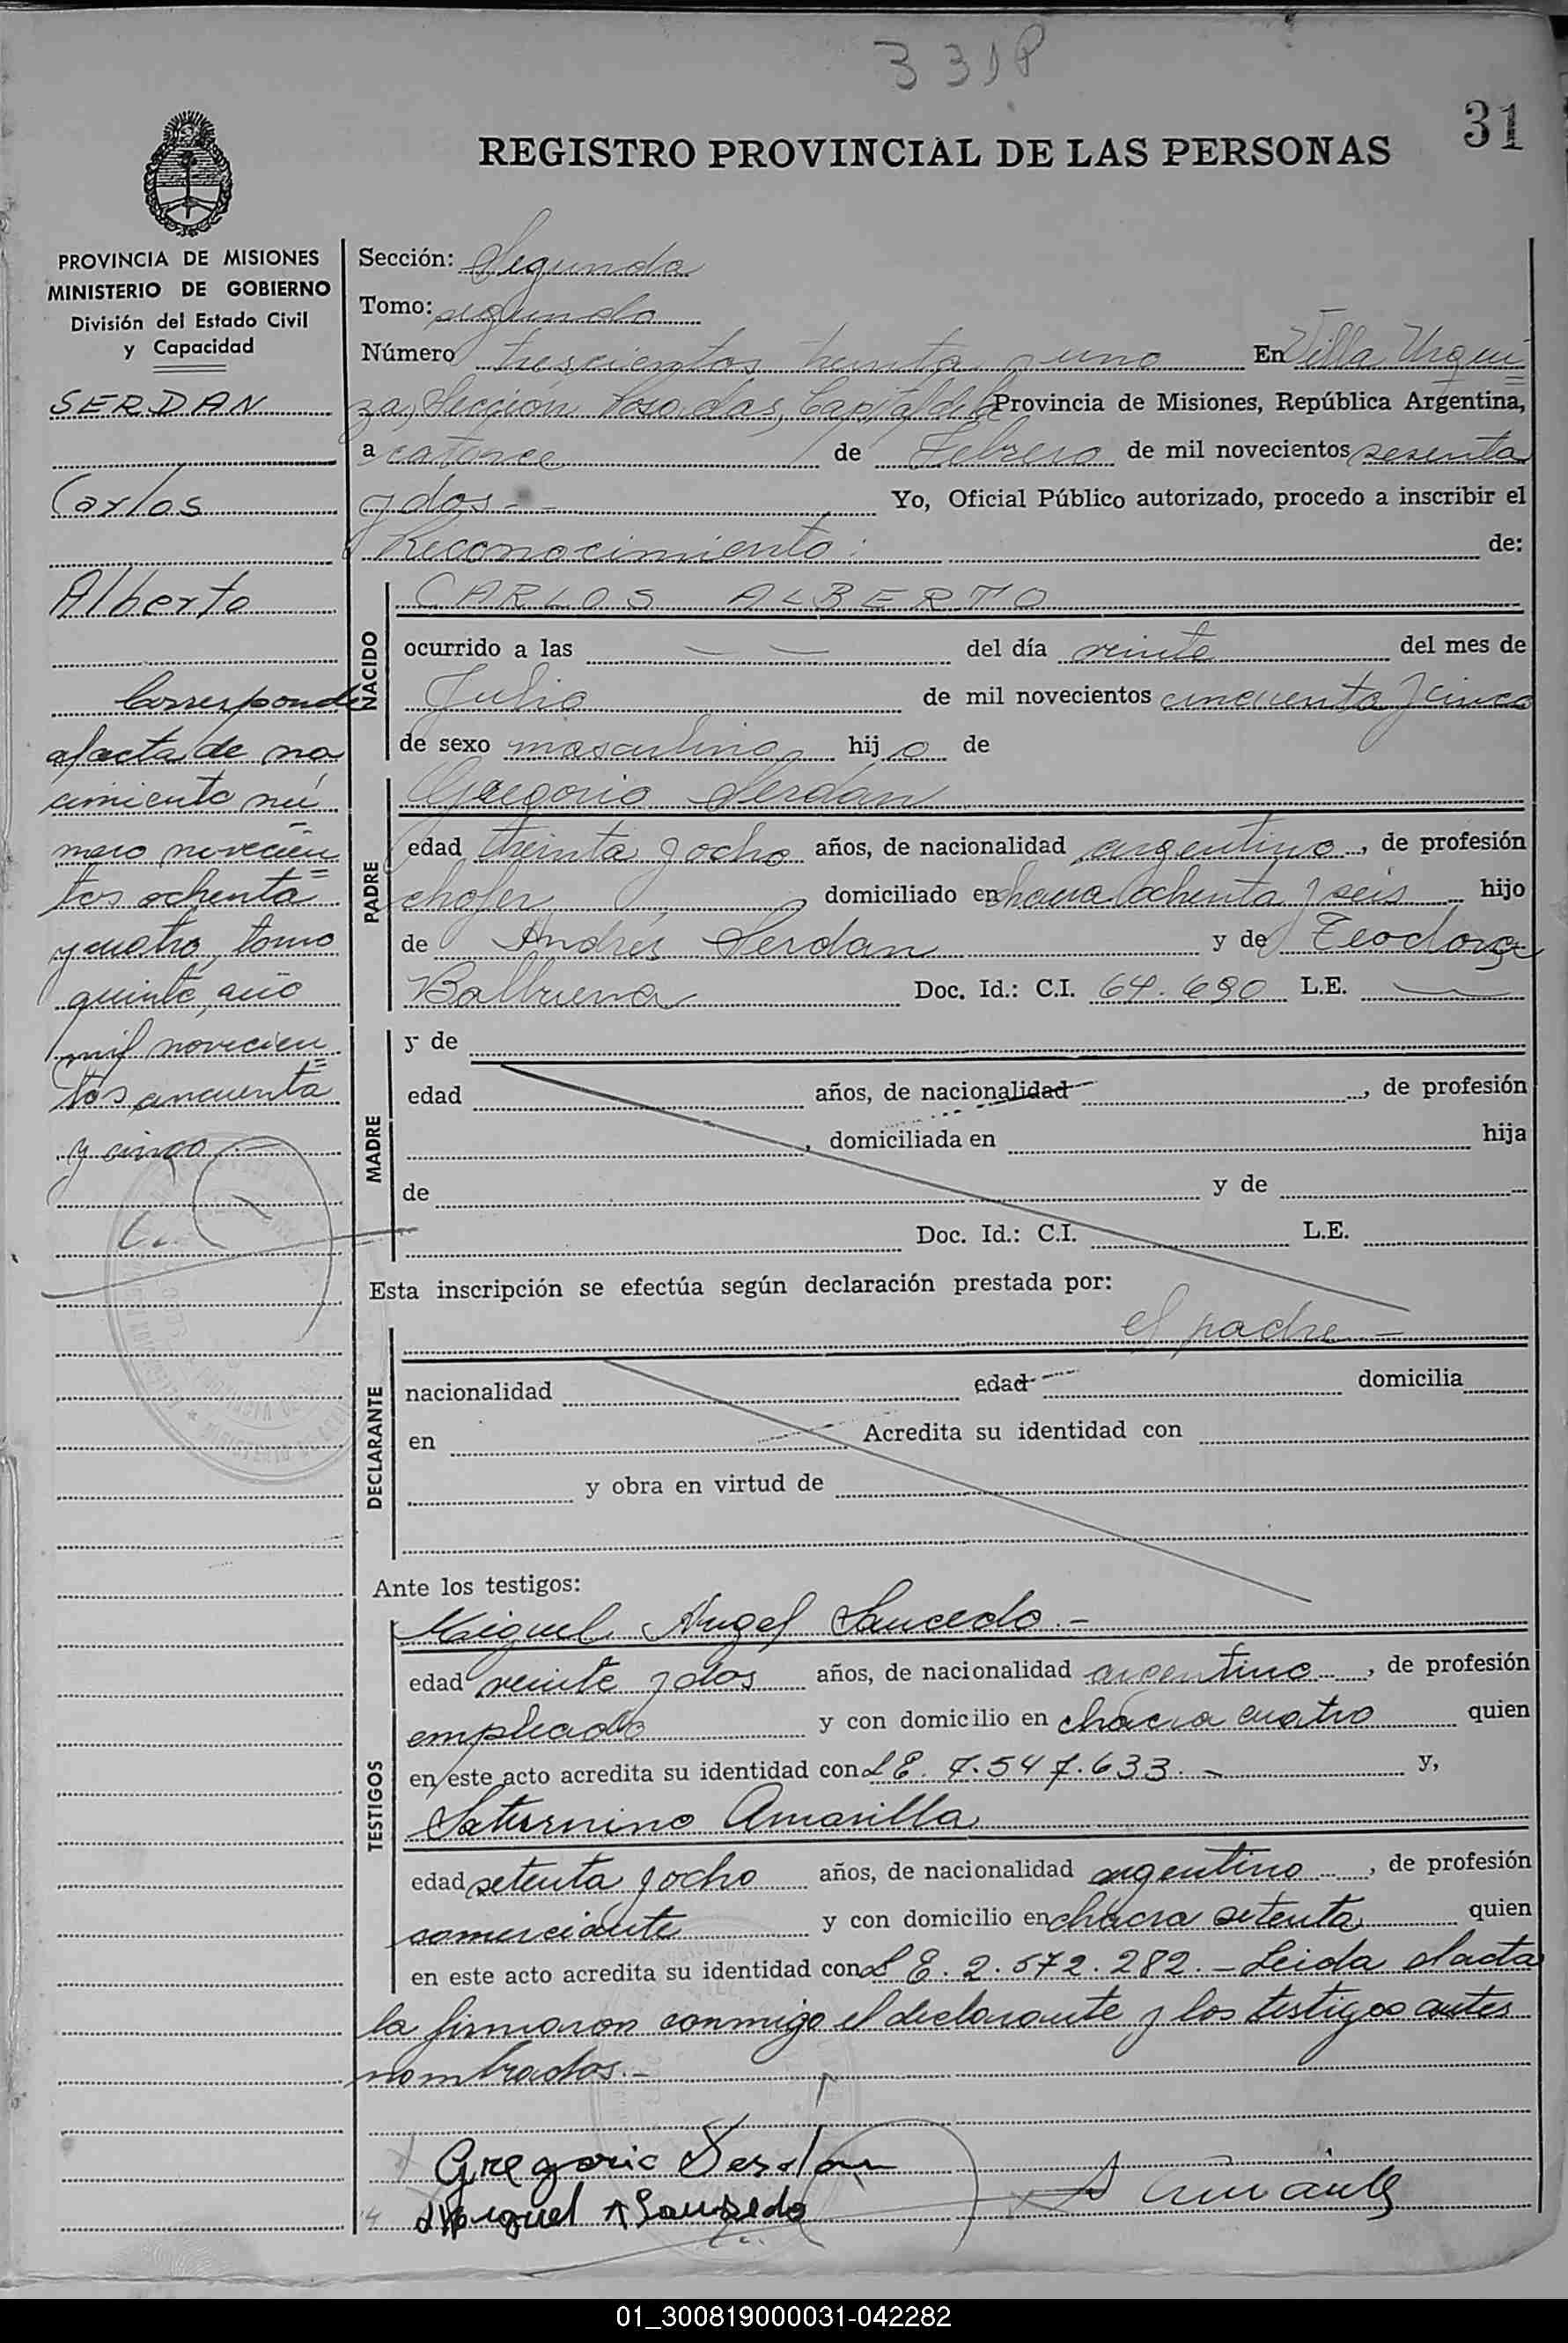 331P
31
REGISTRO PROVINCIAL DE LAS PERSONAS
PROVINCIA DE MISIONES
MINISTERIO DE GOBIERNO
División del Estado Civil
y Capacidad
SERDAN
Carlos
Alberto
Corresponde
al acta de na
cimiento nú
mero novecien
tos ochenta
y cuatro, tomo
quinto, año
mil novecien
tos cincuenta
y cinco.-
Sección: Segunda
Tomo: segundo
Número trescientos treinta y uno En Villa Urqui
za, Sección Posadas, Capital de la Provincia de Misiones, República Argentina,
a catorce de Febrero de mil novecientos sesenta
y dos.- - Yo, Oficial Público autorizado, procedo a inscribir el
Reconocimiento: de:
NACIDO
CARLOS ALBERTO
ocurrido a las — — del día veinte del mes de
Julio de mil novecientos cincuenta y cinco
de sexo masculino hijo de
PADRE
Gregorio Serdan
edad treinta y ocho años, de nacionalidad argentino, de profesión
chofer domiciliado en chacra ochenta y seis hijo
de Andrés Serdan y de Teodora
Balbuena Doc. Id.: C.I. 64.690 L.E. —
MADRE
y de
edad años, de nacionalidad , de profesión
, domiciliada en hija
de y de
Doc. Id.: C.I. L.E.
Esta inscripción se efectúa según declaración prestada por:
el padre.-
DECLARANTE
nacionalidad edad domicilia
en Acredita su identidad con
y obra en virtud de
Ante los testigos:
TESTIGOS
Miguel Angel Saucedo.-
edad veinte y dos años, de nacionalidad argentino, de profesión
empleado y con domicilio en chacra cuatro quien
en este acto acredita su identidad con L E. 7.547.633.- y,
Saturnino Amarilla
edad setenta y ocho años, de nacionalidad argentino, de profesión
comerciante y con domicilio en chacra setenta quien
en este acto acredita su identidad con L E. 2.572.282.- Leida el acta
la firmaron conmigo el declarante y los testigos antes
nombrados.-
Gregorio Serdan
Miguel A Saucedo
01_300819000031-042282